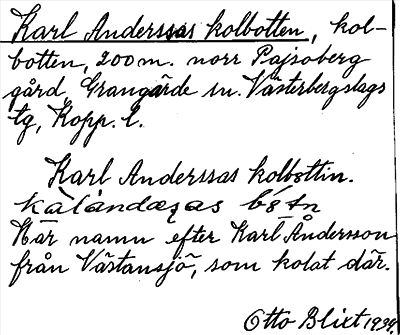 Karl Anderssas kolbotten, kol-
botten, 200 m. norr Pajsoberg
gård, Grangärde sn. Västerbergslags
tg, Kopp. l.
Karl Anderssas kolbottin.
Har namn efter Karl Andersson
från Västansjö, som kolat där.
Otto Blixt 1939.